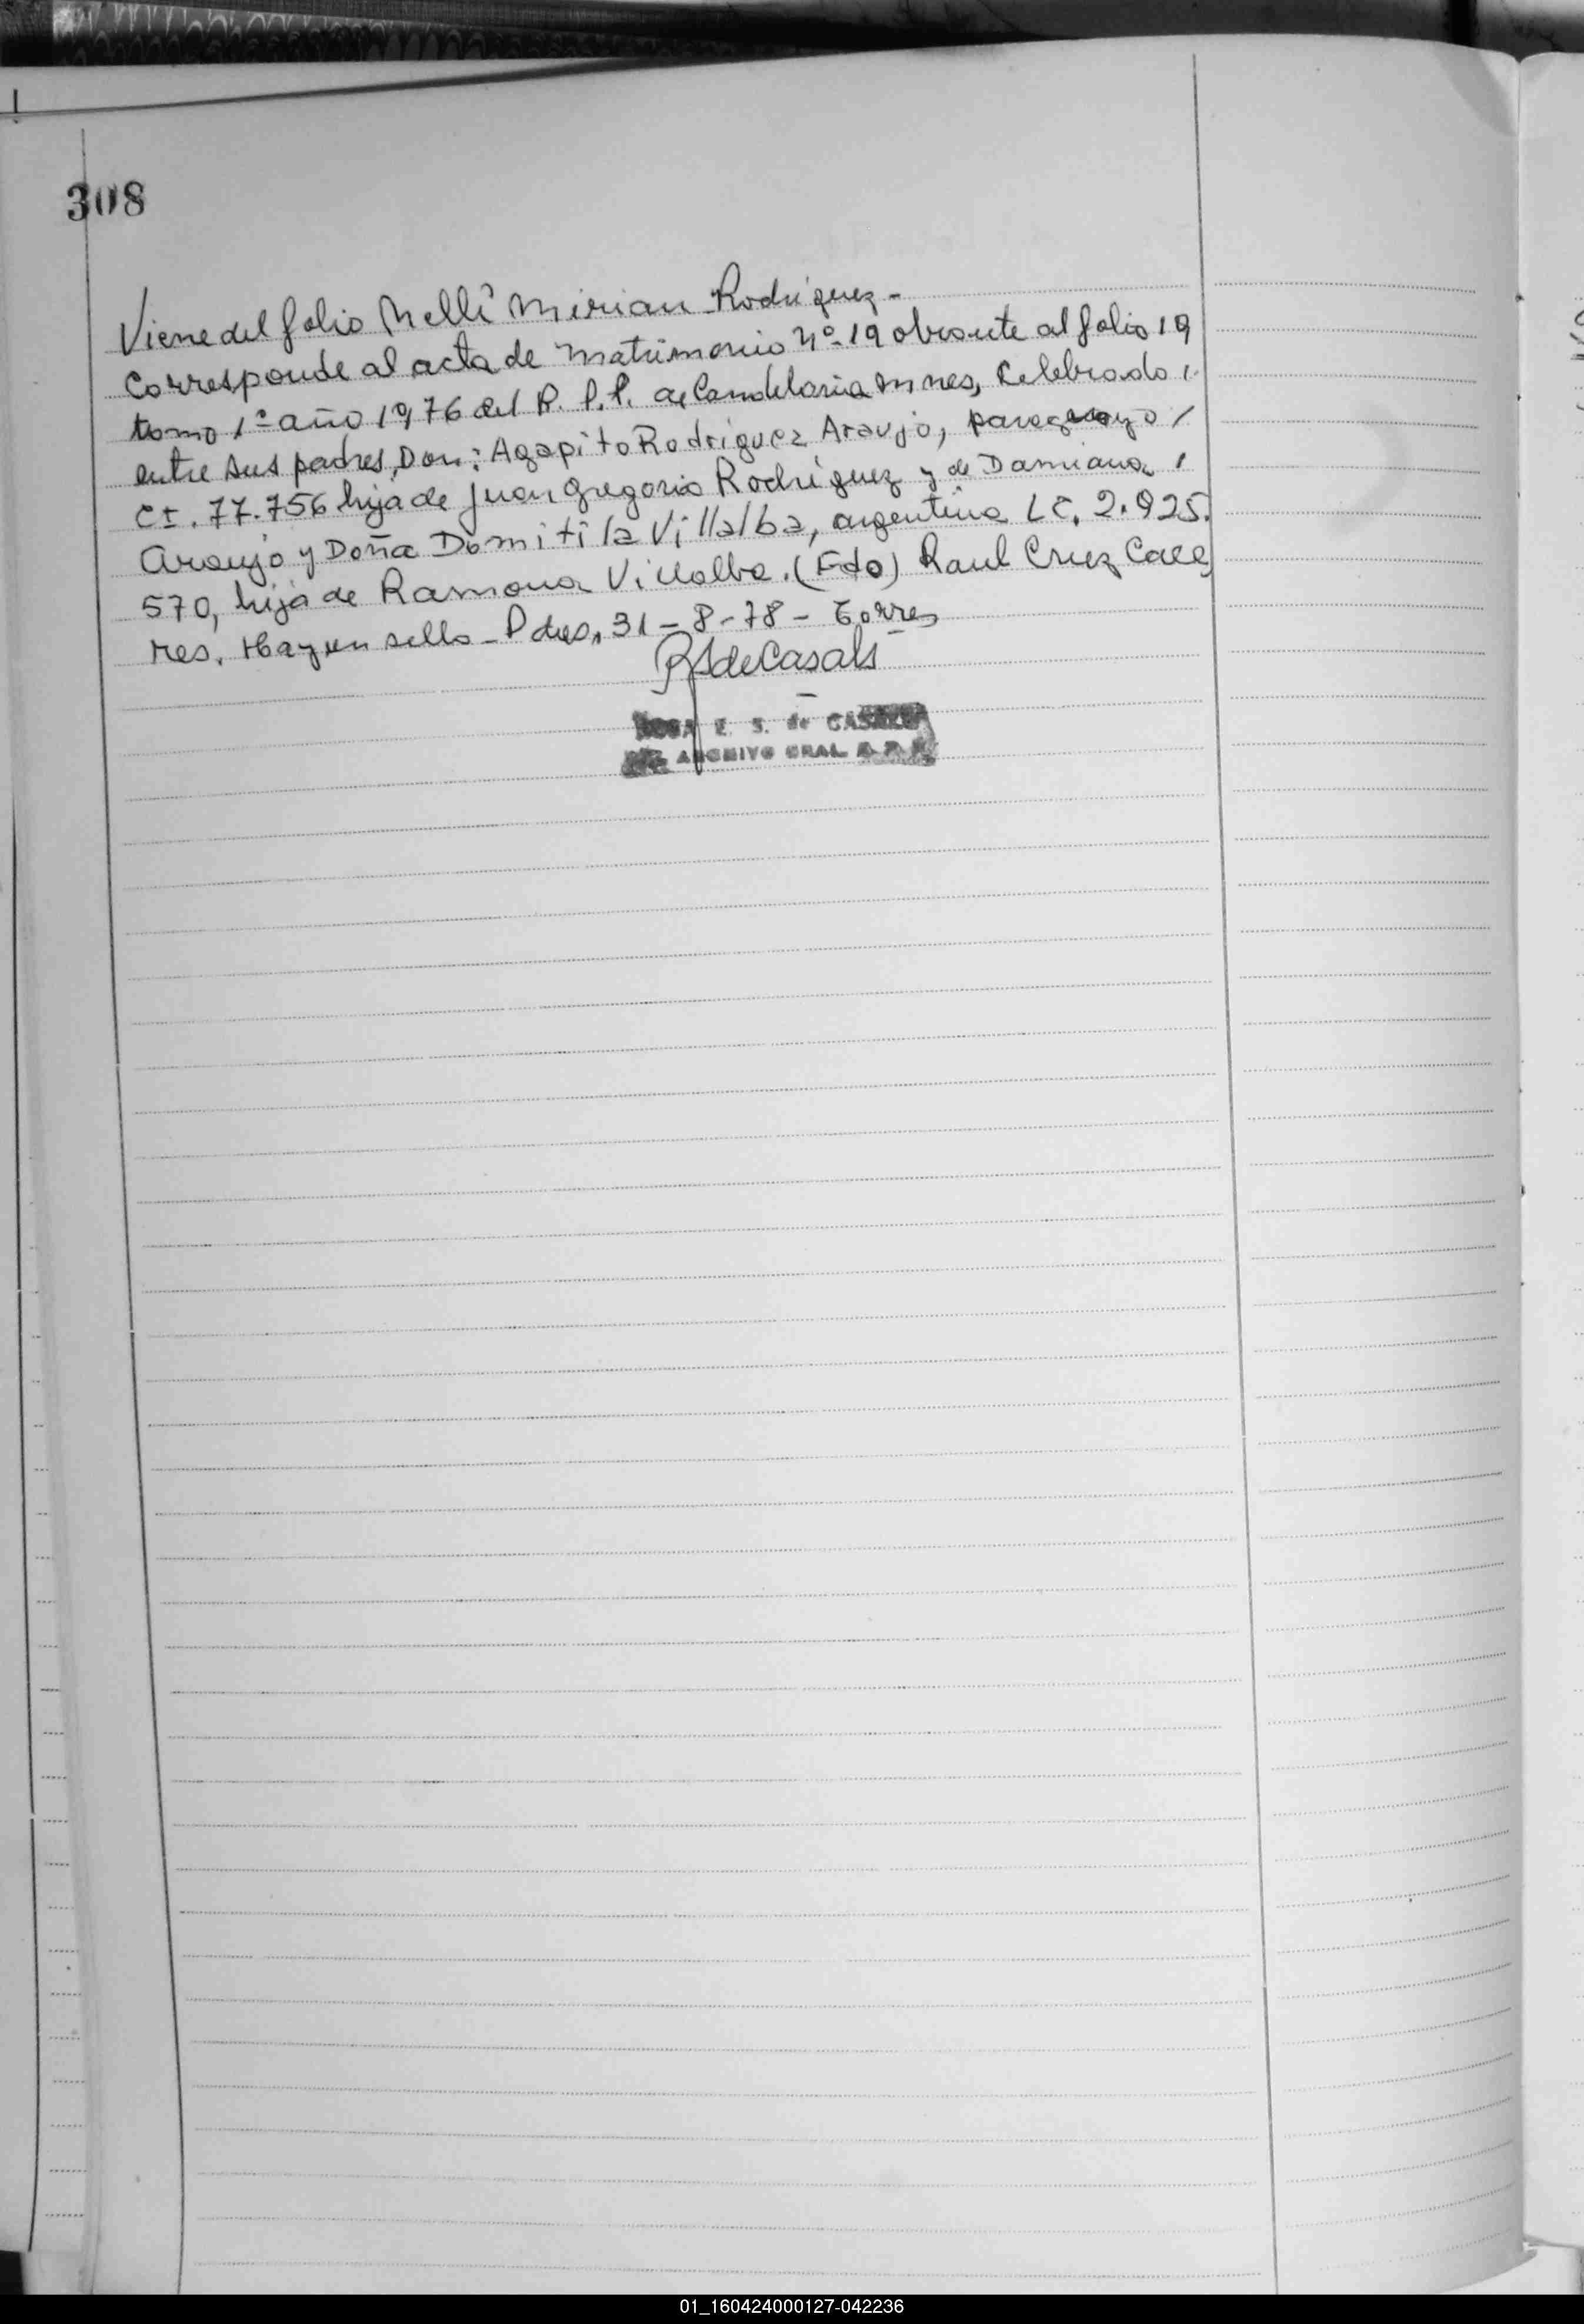 308
Viene del folio Nelli Mirian Rodriguez -
Corresponde al acta de Matrimonio Nº 19 obrante al folio 19
tomo 1º año 1976 del R. P. P. de Candelaria Mnes, Celebrado /
entre sus padres, Don: Agapito Rodriguez Araujo, paraguayo /
CI. 77.756 hijo de Juan Gregorio Rodriguez y de Damiana /
Araujo y Doña Domitila Villalba, argentina LC. 2.925.
570, hija de Ramona Villalba. (Fdo) Raul Cruz Cace
res. Hay un sello - Pdas, 31 - 8 - 78 - Torres
RSdeCasals
E. S. de
ARCHIVO GRAL
01_160424000127-042236